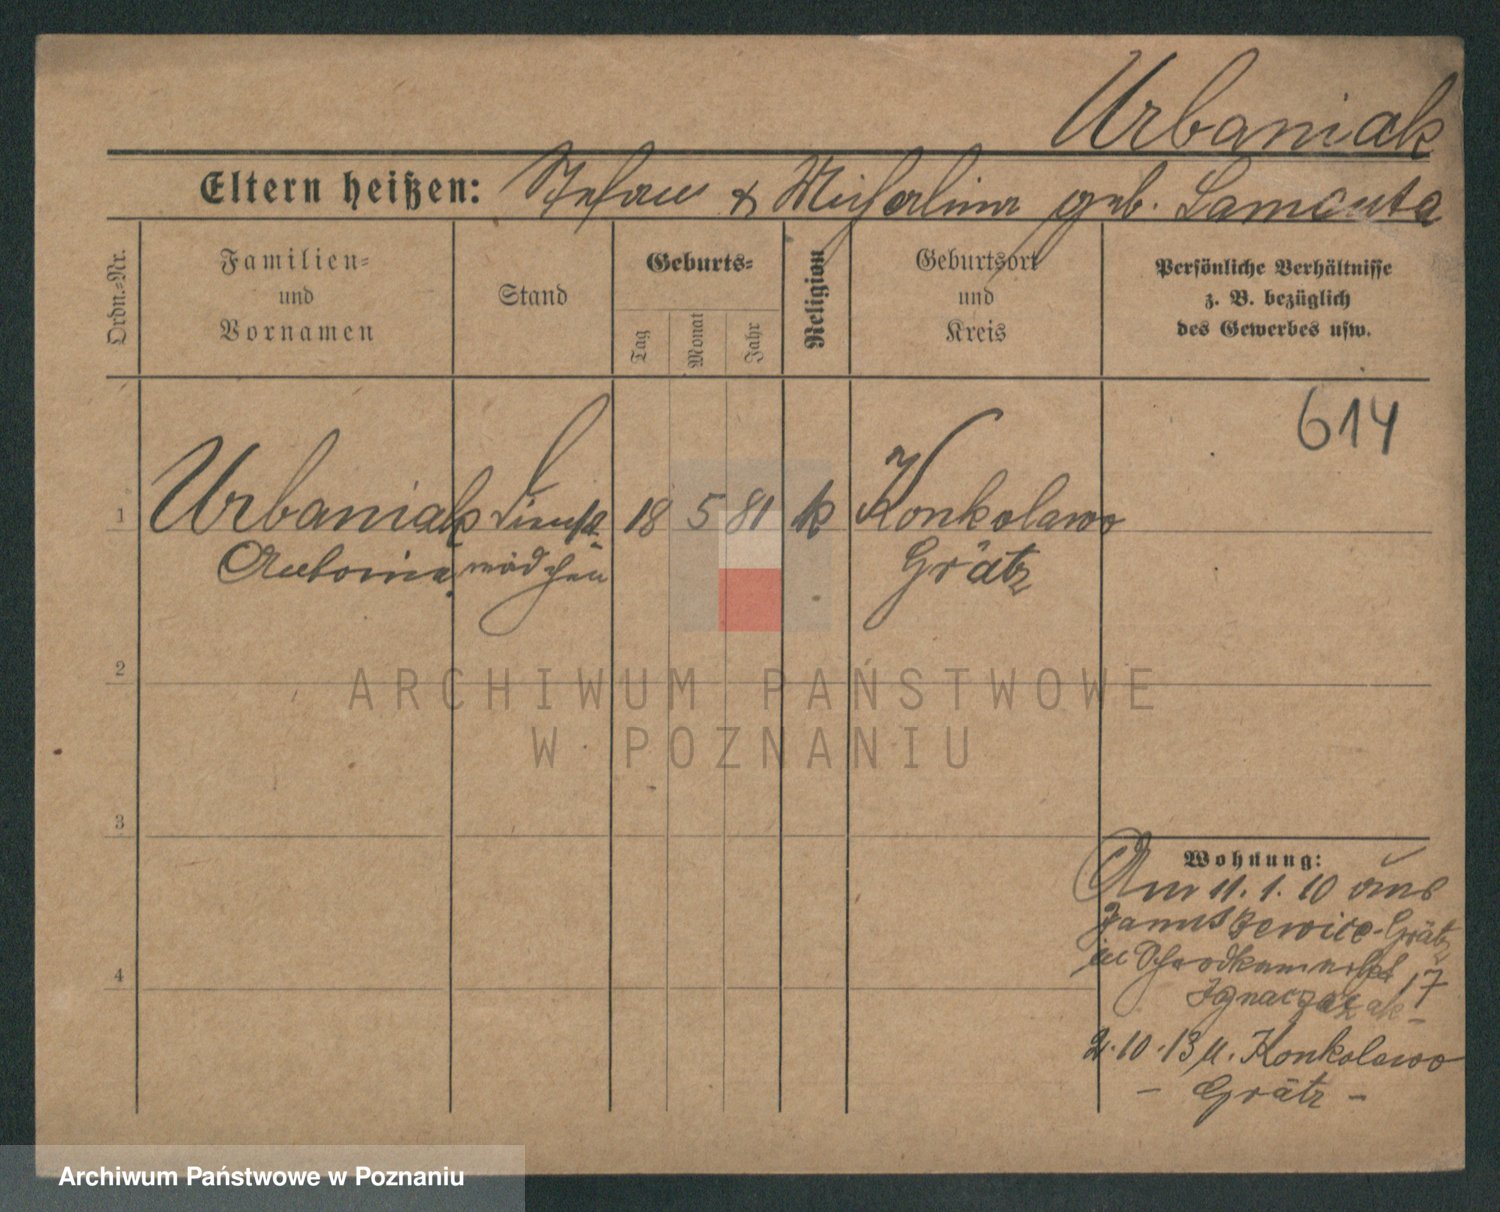 Urbaniak
Eltern heißen: Stefan & Michalina geb. Lamenta
Ordn.-Nr.
Familien-
und
Vornamen
Stand
Geburts-
Tag
Monat
Jahr
Religion
Geburtsort
und
Kreis
Persönliche Verhältnisse
z. B. bezüglich
des Gewerbes usw.
614
1 Urbaniak Dienst- 18 5 81 k Konkolewo
Antonie mädchen Grätz
2
ARCHIWUM PAŃSTWOWE
W POZNANIU
3
4
Wohnung:
Am 11.1.10 aus
Januszewice-Grätz
in 17
Ignaczak
2.10.13 n. Konkolewo
- Grätz -
Archiwum Państwowe w Poznaniu